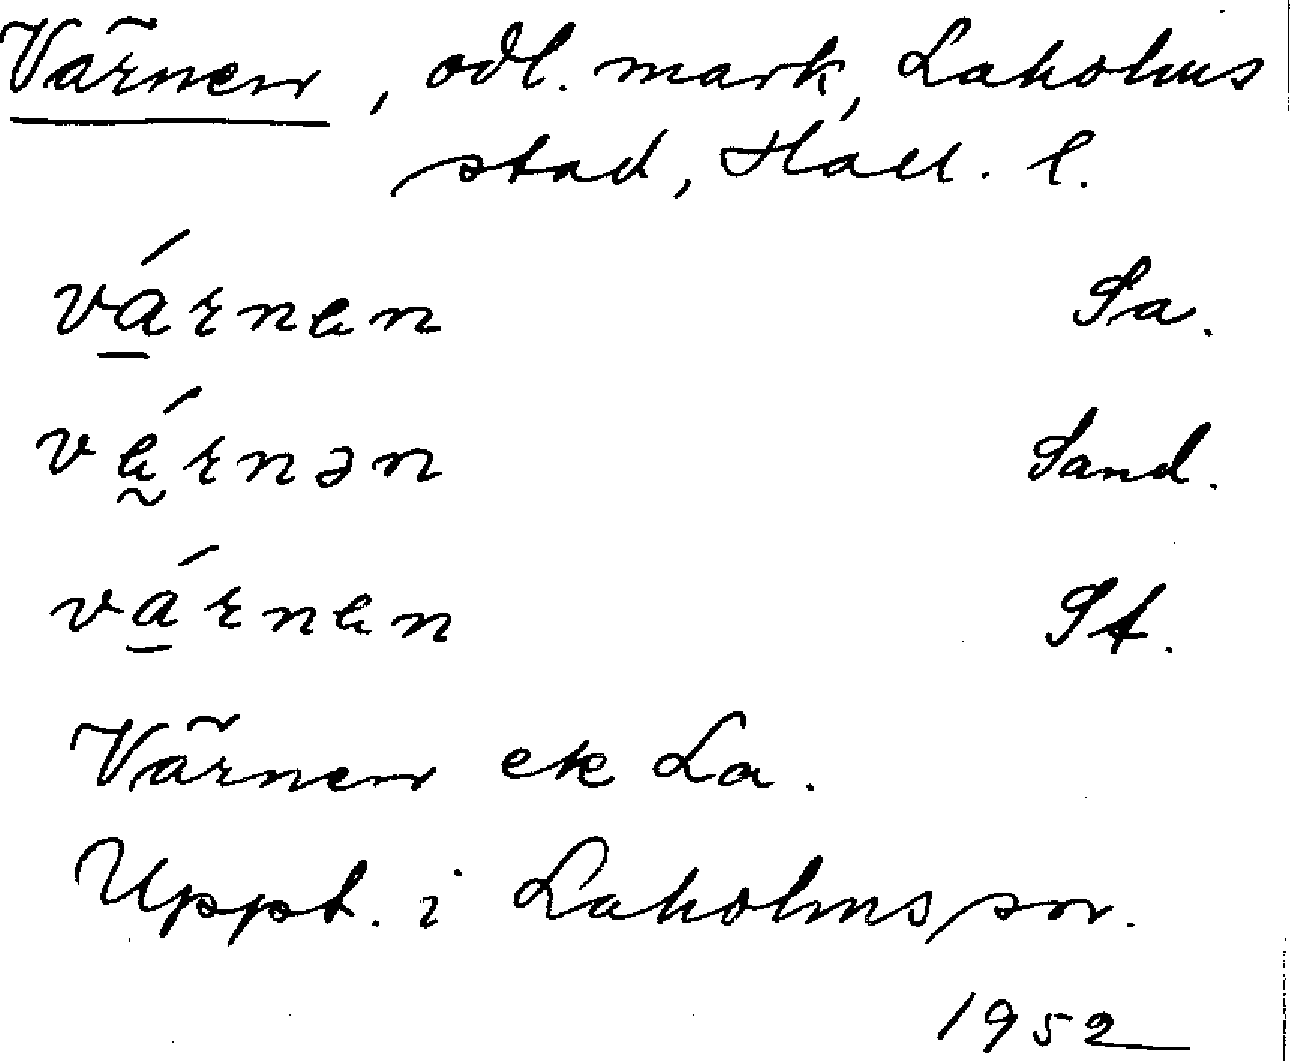 Värnen, odl. mark, Laholms
stad, Hall. l.
vá̱rnen Sa.
vḛ́rnən Sand.
vá̱rnen St.
Värnen ek La.
Uppt. i Laholms sn.
1952